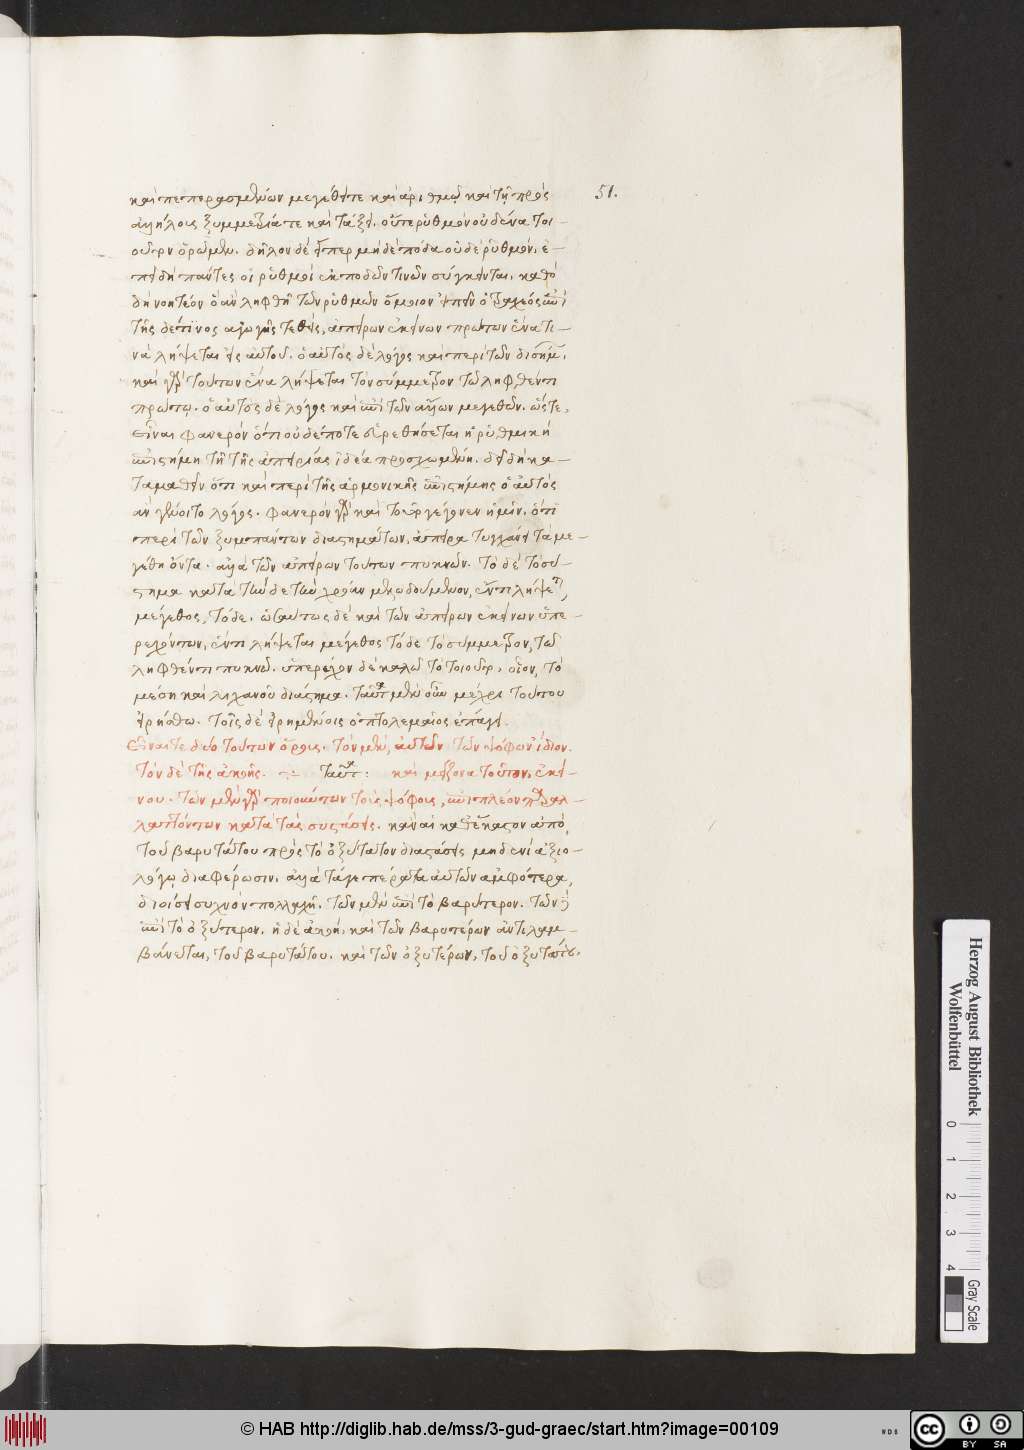 51.
καὶ πεπερασμένων μεγέθει τε καὶ ἀριθμῷ καὶ τῇ πρὸς
ἀλλήλους ξυμμετρίᾳ τε καὶ τάξει. οὔτε ῥυθμὸν οὐδένα τοι-
οῦτον ὁρῶμεν. δῆλον δὲ εἴπερ μηδὲ πόδα οὐδὲ ῥυθμόν. ἐ-
πειδὴ πάντες οἱ ῥυθμοὶ ἐκ ποδῶν τινῶν σύγκεινται. καθό
δὴ νοητέον ὃ ἂν ληφθῇ τῶν ῥυθμῶν ὅμοιον εἰπεῖν ὁ τροχαῖος ἐπὶ
τῆς δέ τινος ἀγωγῆς τεθεὶς, ἀπείρων ἐκείνων πρώτων ἕνα τι-
νὰ λήψεται εἰς αὑτόν. ὁ αὐτὸς δὲ λόγος καὶ περὶ τῶν δισήμων.
καὶ γὰρ τούτων ἕνα λήψεται τὸν σύμμετρον τῷ ληφθέντι
πρώτῳ. ὁ αὐτὸς δὲ λόγος καὶ ἐπὶ τῶν ἄλλων μεγεθῶν. ὥστε,
εἶναι φανερὸν ὅτι οὐδέποτε εὑρεθήσεται ἡ ῥυθμικὴ
ἐπιστήμη τῇ τῆς ἀπειρίας ἰδέᾳ προσχρωμένη. δεῖ δὴ κα-
ταμαθεῖν ὅτι καὶ περὶ τῆς ἁρμονικῆς ἐπιστήμης ὁ αὐτὸς
ἂν γένοιτο λόγος. φανερὸν γὰρ καὶ τοῦτο γέγονεν ἡμῖν. ὅτι
περὶ τῶν ξυμπάντων διαστημάτων, ἄπειρα τυγχάνει τὰ με-
γέθη ὄντα. ἀλλὰ τῶν ἀπείρων τούτων πυκνῶν. τὸ δέ τὸ σύ-
στημα κατὰ τὴν δε τὴν χρόαν μελῳδούμενον, ἕν τι λήψεται
μέγεθος, τόδε. ὡσαύτως δὲ καὶ τῶν ἀπείρων ἐκείνων ὑπε-
ρεχόντων, ἕν τι λήψεται μέγεθος τόδε τὸ σύμμετρον, τῷ
ληφθέντι πυκνῷ. ὑπερέχον δὲ καλῶ τὸ τοιοῦτον, οἷον, τὸ
μέση καὶ λιχανοῦ διάστημα. ταῦτα μὲν οὖν μέχρι τούτου
εἰρήσθω. τοῖς δὲ εἰρημένοις ὁ πτολεμαῖος ἐπάγει.
Εἶναί τε δύο τούτων ὅρους. τὸν μὲν, αὐτῶν τῶν ψόφων ἴδιον.
τὸν δὲ τῆς ἀκοῆς. ταῦτα: καὶ μείζονα τοῦτον, ἐκεί-
νου. τῶν μὲν γὰρ ποιούντων τοὺς ψόφους, ἐπιπλέον παραλ-
λαττόντων κατὰ τὰς συστάσεις. κἂν αἱ καθέκαστον ἀπὸ
τοῦ βαρυτάτου πρὸς τὸ ὀξύτατον διαστάσεις μηδενὶ ἀξιο-
λόγῳ διαφέρωσιν. ἀλλὰ τά γε πέρατα αὐτῶν ἀμφότερα,
διοίσει συχνὸν πολλαχῇ. τῶν μὲν ἐπὶ τὸ βαρύτερον. τῶν δὲ
ἐπὶ τὸ ὀξύτερον. ἡ δὲ ἀκοὴ, καὶ τῶν βαρυτέρων ἀντιλαμ-
βάνεται, τοῦ βαρυτάτου. καὶ τῶν ὀξυτέρων, τοῦ ὀξυτάτου.
Herzog August Bibliothek
Wolfenbüttel
0 1 2 3 4
Gray Scale
© HAB http://diglib.hab.de/mss/3-gud-graec/start.htm?image=00109
WDB
cc BY SA